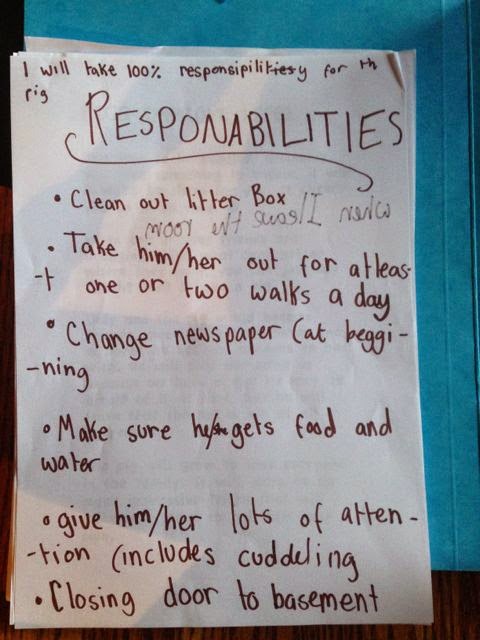 I will take 100% responsipilitiesy for th
rig
RESPONABILITIES
• Clean out litter Box
when I leave the room
• Take him/her out for atleas-
-t one or two walks a day
• Change newspaper (at beggi-
-ning
• Make sure he/she gets food and
water
• give him/her lots of atten-
-tion (includes cuddeling
• Closing door to basement